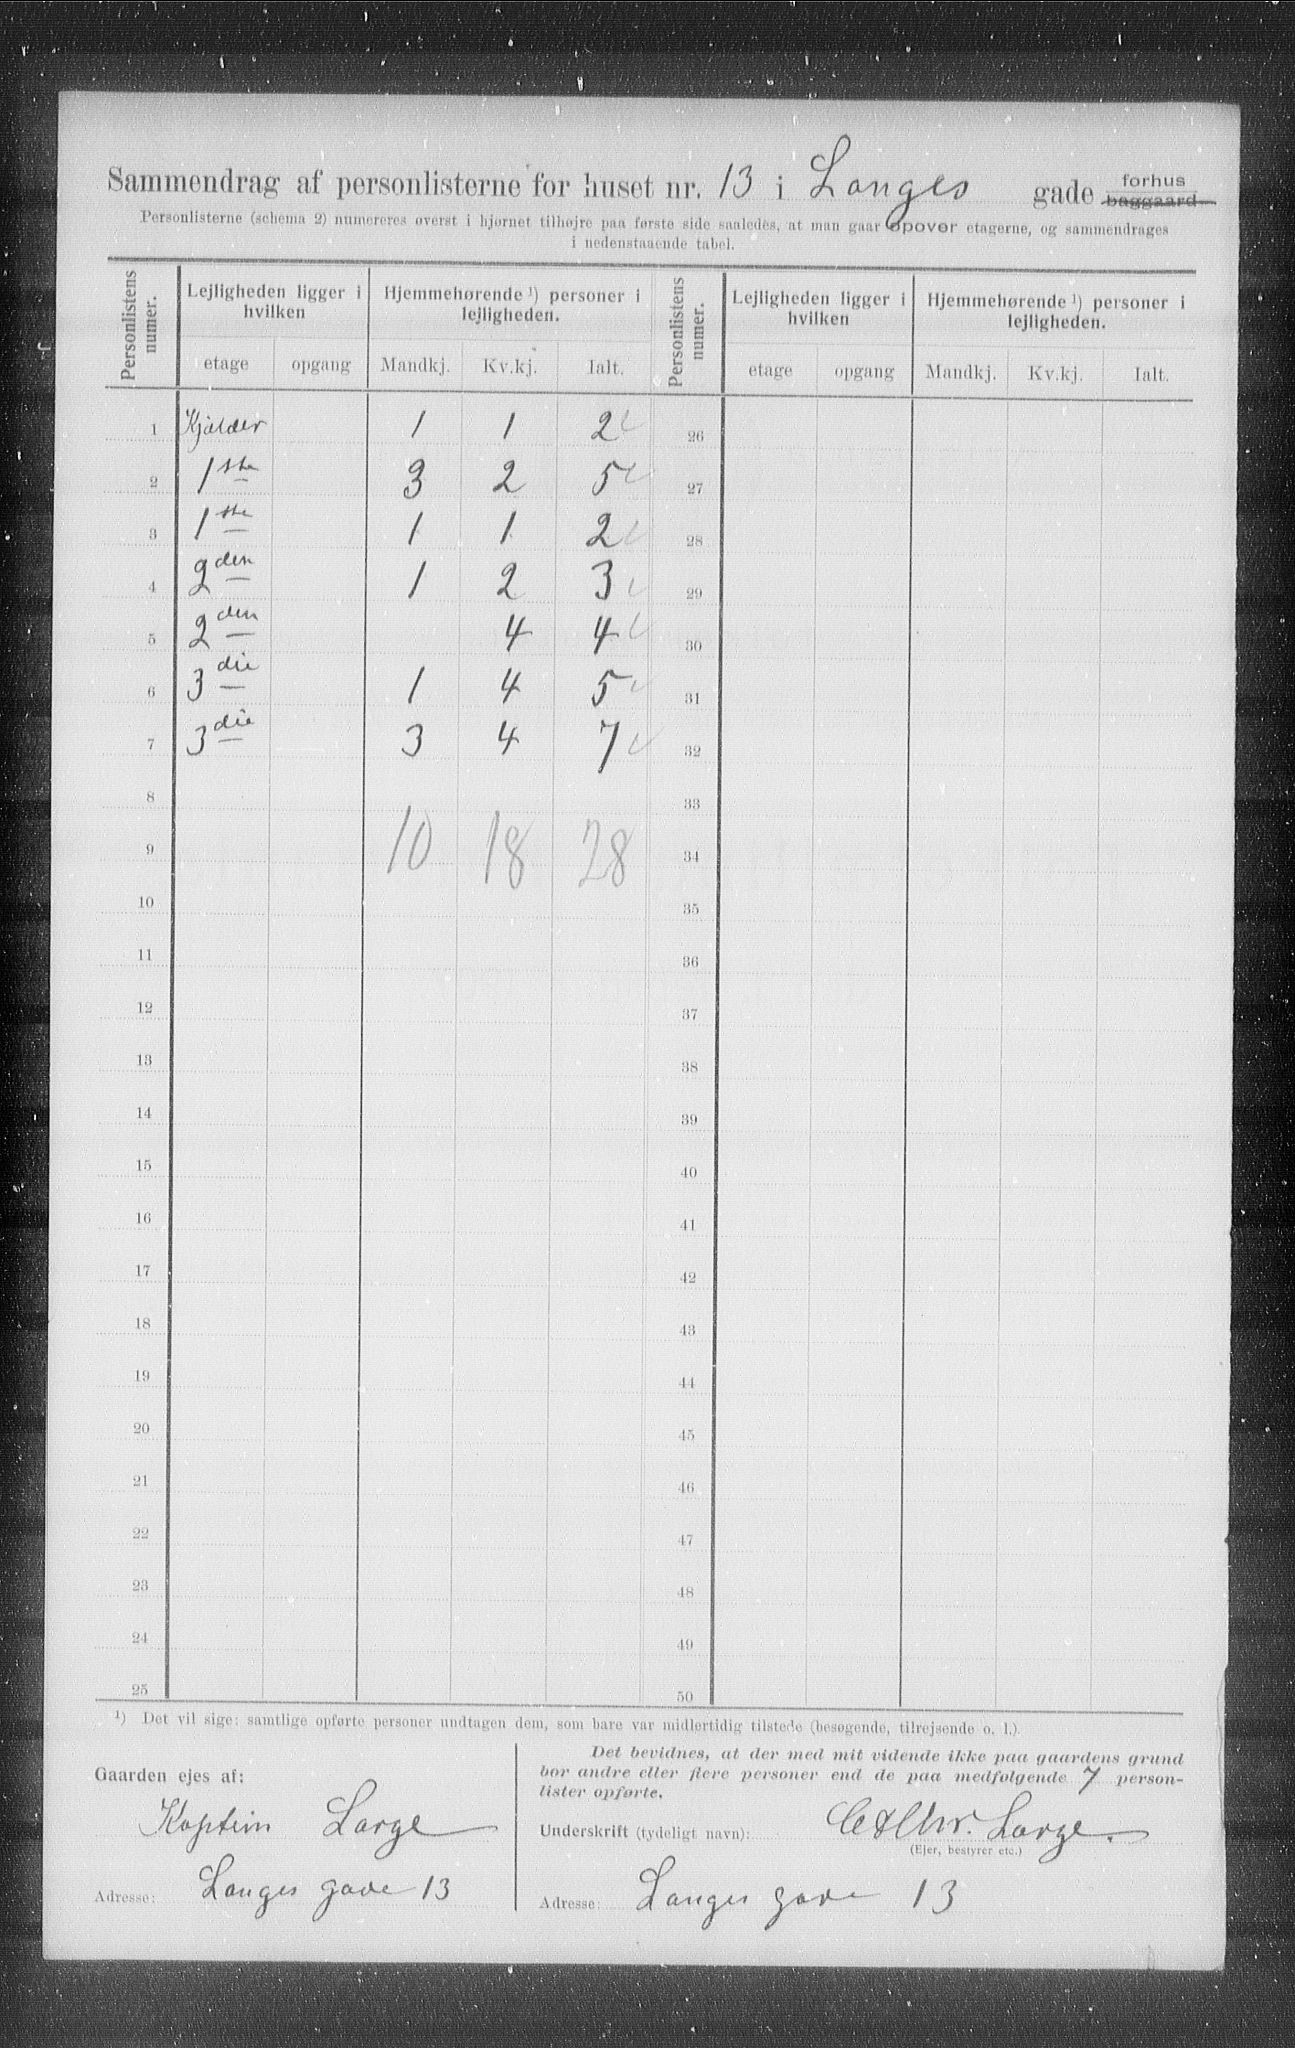 Sammendrag af personlisterne for huset nr. 13 i Langes gade forhus baggaard
Personlisterne (schema 2) numereres øverst i hjørnet tilhøjre paa første side saaledes, at man gaar opover etagerne, og sammendrages
i nedenstaaende tabel.
Personlistens numer. Lejligheden ligger i hvilken Hjemmehørende ¹) personer i lejligheden. Personlistens numer. Lejligheden ligger i hvilken Hjemmehørende ¹) personer i lejligheden.
etage opgang Mandkj. Kv.kj. Ialt. etage opgang Mandkj. Kv.kj. Ialt.
1 Kjælder 1 1 2 26
2 1ste 3 2 5 27
3 1ste 1 1 2 28
4 2den 1 2 3 29
5 2den 4 4 30
6 3die 1 4 5 31
7 3die 3 4 7 32
8 33
9 10 18 28 34
10 35
11 36
12 37
13 38
14 39
15 40
16 41
17 42
18 43
19 44
20 45
21 46
22 47
23 48
24 49
25 50
¹) Det vil sige: samtlige opførte personer undtagen dem, som bare var midlertidig tilstede (besøgende, tilrejsende o. l.).
Gaarden ejes af:
Kaptein Lange
Adresse: Langes gade 13
Det bevidnes, at der med mit vidende ikke paa gaardens grund
bor andre eller flere personer end de paa medfølgende 7 person-
lister opførte.
Underskrift (tydeligt navn): Chr. Lange.
(Ejer, bestyrer etc.)
Adresse: Langes gade 13